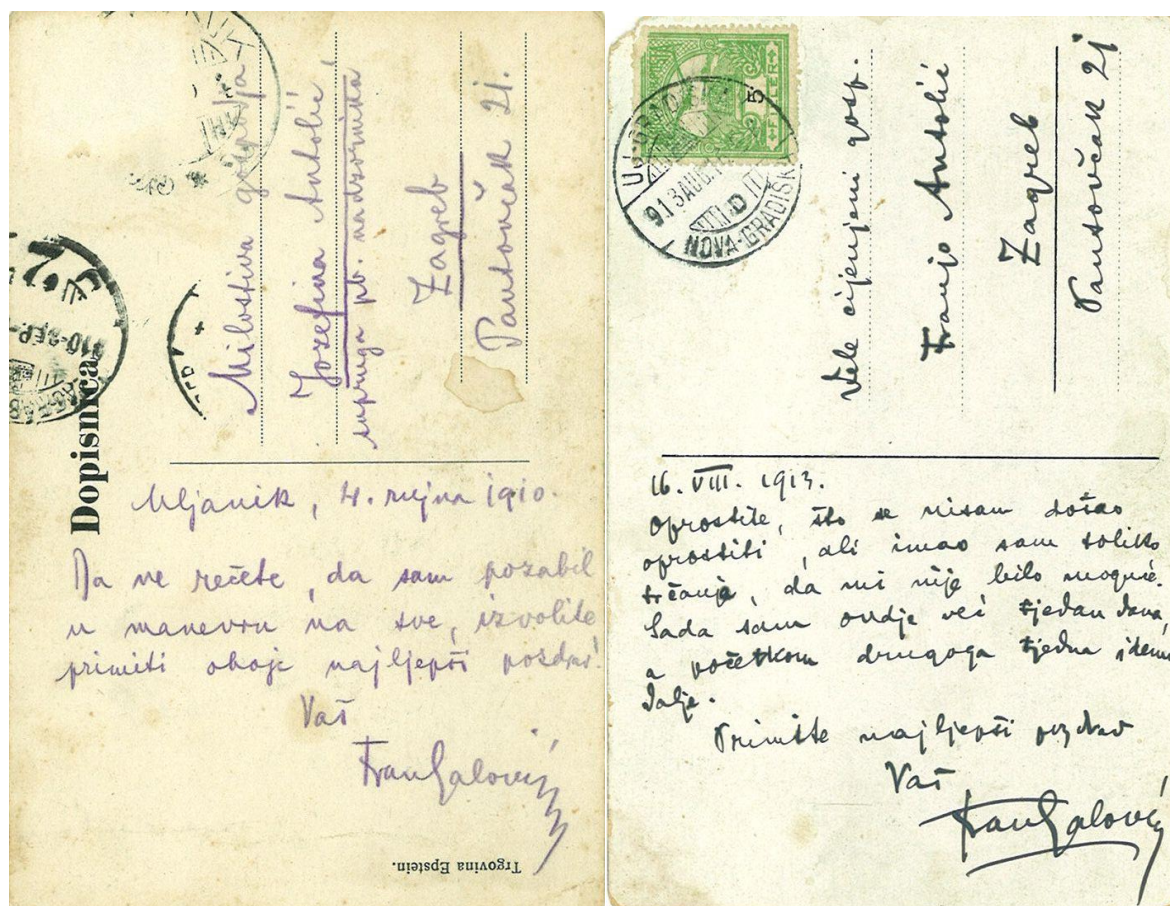 Milostiva gospodja
Josefina Antolić,
supruga pb. nadzornika
Zagreb
Pantovčak 2j.
Dopisnica.
Uljanik, 4. rujna 1910.
Da ne rečete, da sam pozabil
u manevru na sve, izvolite
primiti oboje najljepši pozdrav!
Vaš
Fran Galović
Trgovina Epstein.
5
FILLER
UJ-GRADISKA
913 AUG.
D
NOVA-GRADIŠKA
Vele cijenjeni gosp.
Franjo Antolić
Zagreb
Pantovčak 2j
16. VIII. 1913.
Oprostite, što se nisam došao
oprostiti, ali imao sam toliko
trčanja, da mi nije bilo moguće.
Sada sam ovdje već tjedan dana,
a početkom drugoga tjedna idem
dalje.
Primite najljepši pozdrav
Vaš
Fran Galović